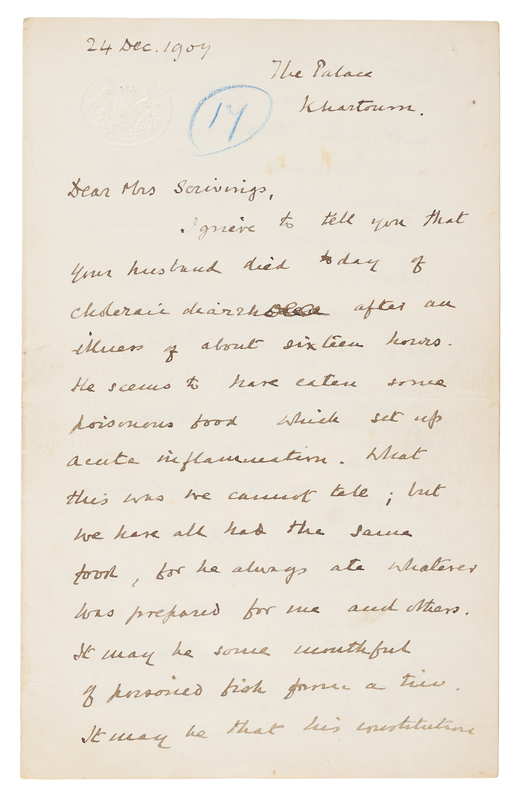 24 Dec. 1907
The Palace
Khartoum.
17
Dear Mrs Scrivings,
I grieve to tell you that
your husband died today of
choleraic diarrhoea after an
illness of about sixteen hours.
He seems to have eaten some
poisonous food which set up
acute inflammation. What
this was we cannot tell; but
we have all had the same
food, for he always ate whatever
was prepared for me and others.
It may be some mouthful
of poisoned fish from a tin.
It may be that his constitution